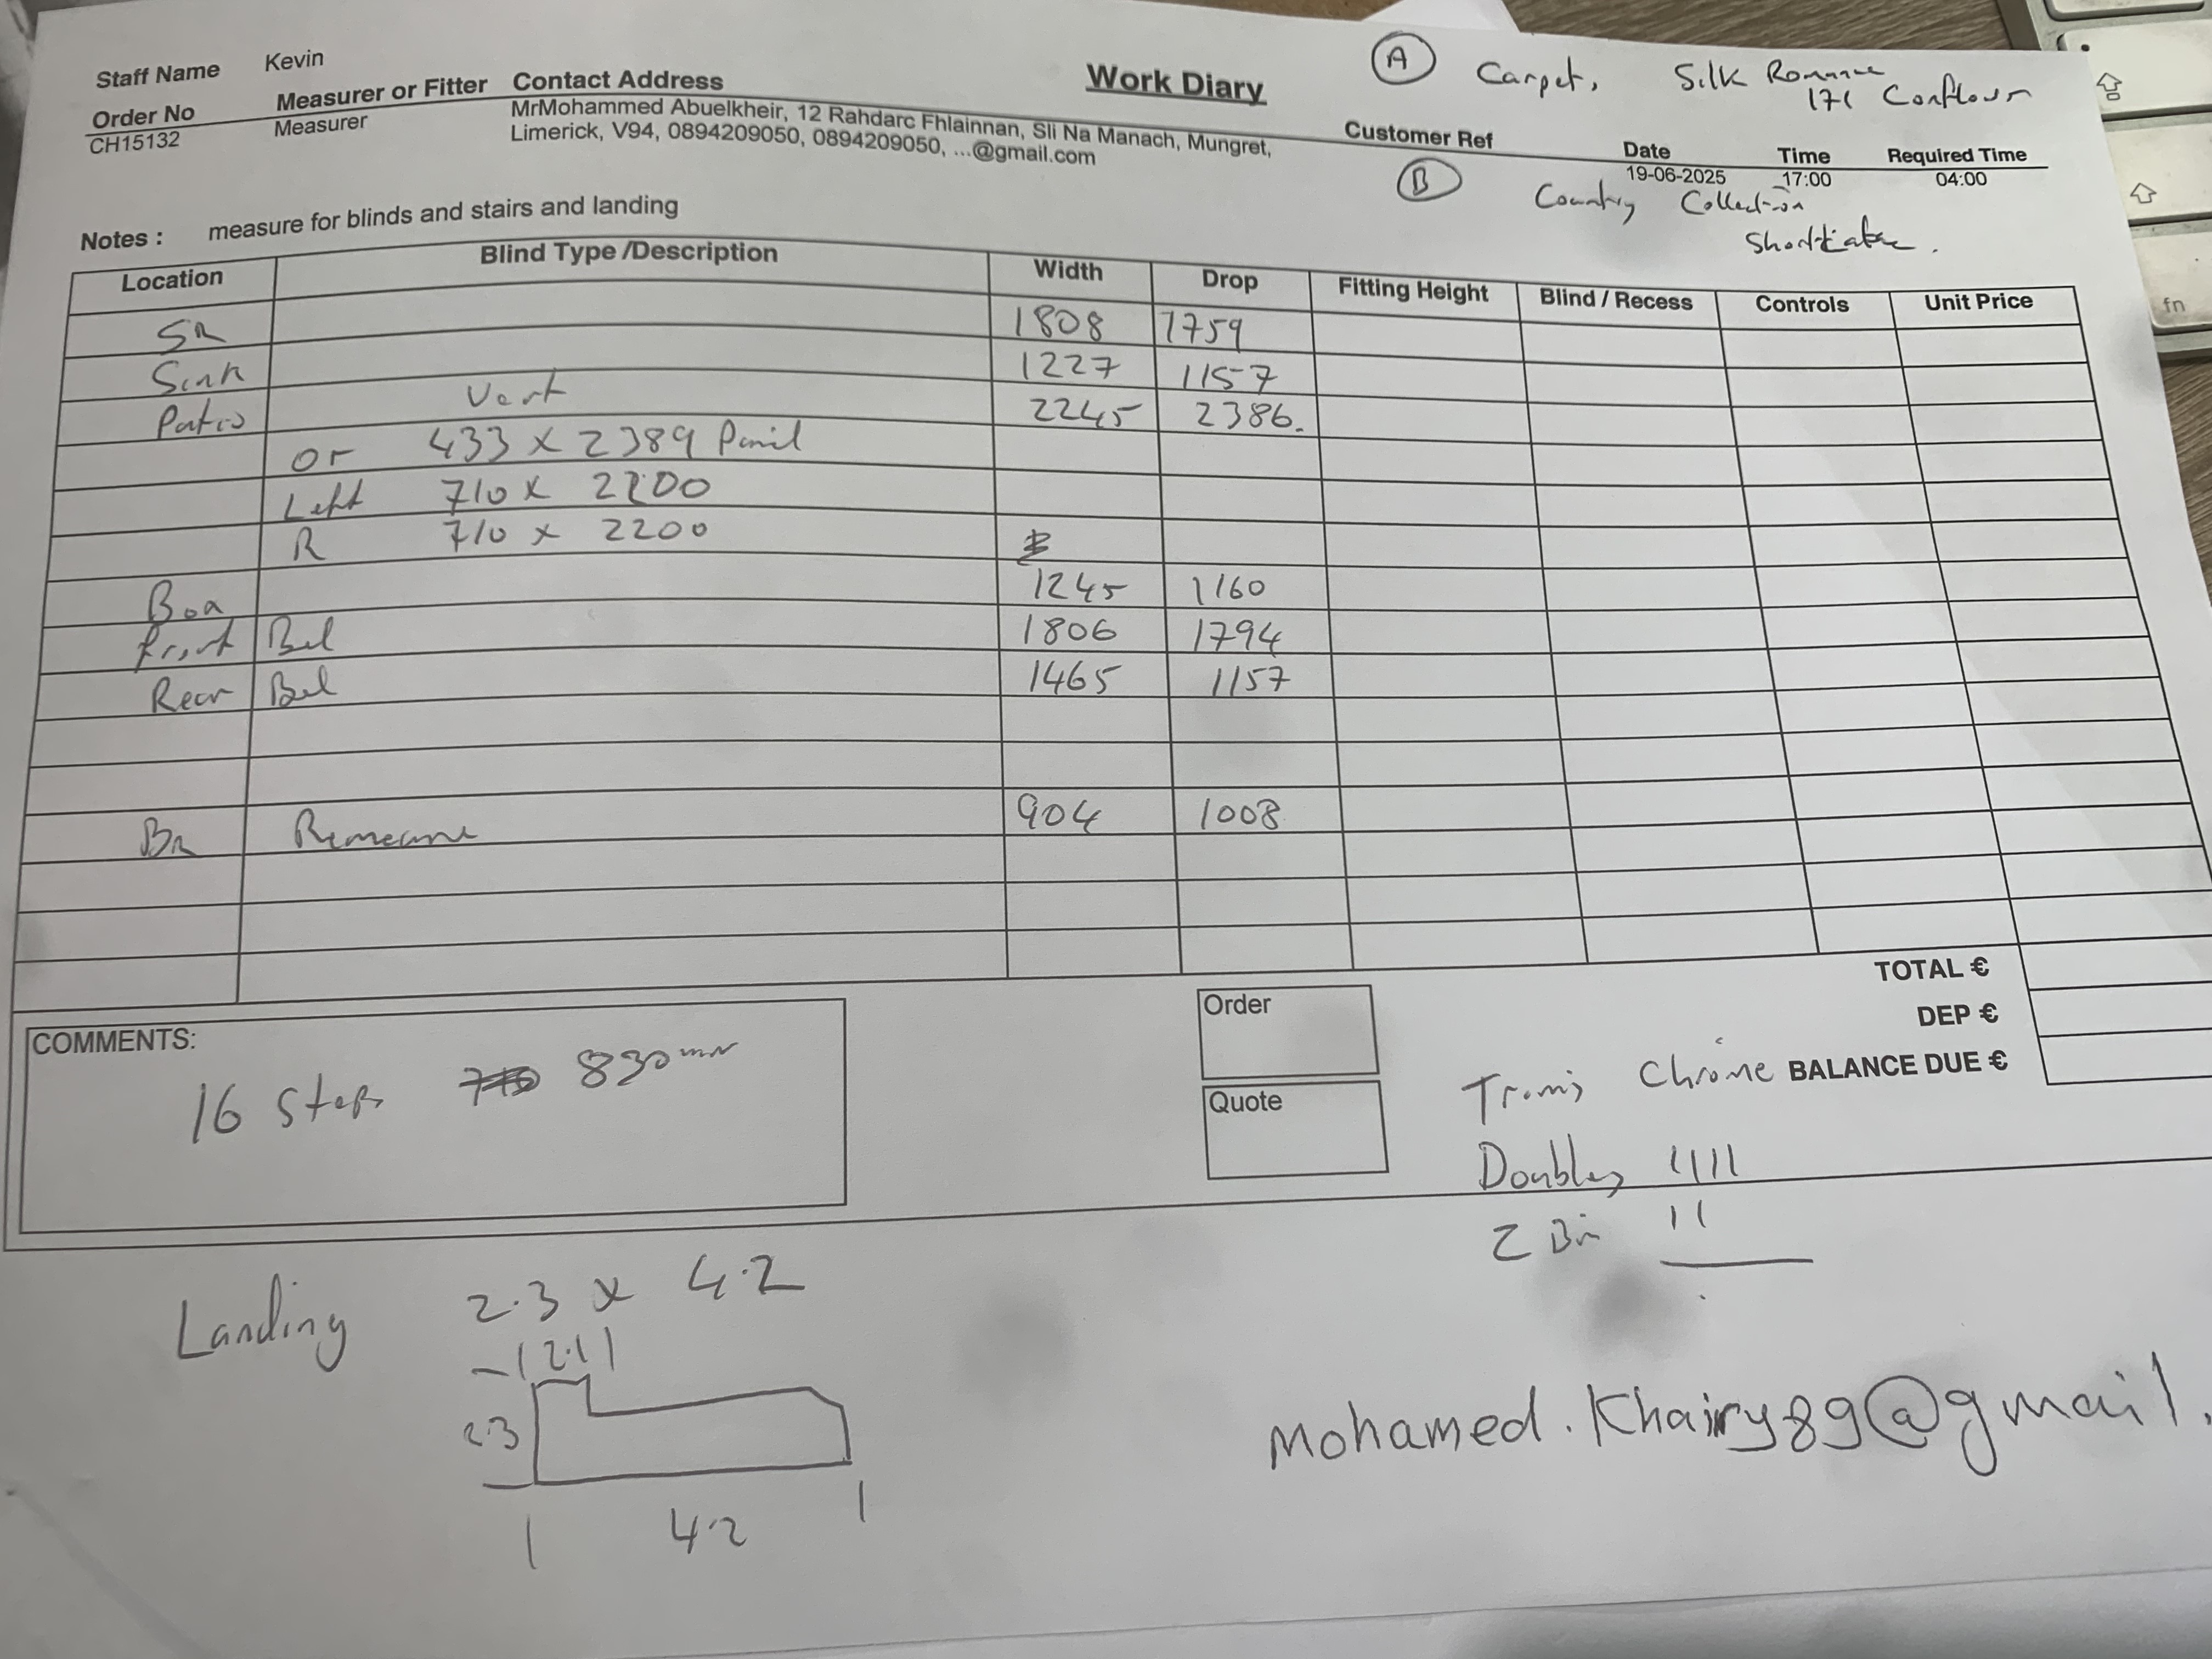 Staff Name Kevin
Work Diary
(A) Carpet, Silk Romance
171 Conflour
Order No Measurer or Fitter Contact Address Customer Ref Date Time Required Time
CH15132 Measurer MrMohammed Abuelkheir, 12 Rahdarc Fhlainnan, Sli Na Manach, Mungret, 19-06-2025 17:00 04:00
Limerick, V94, 0894209050, 0894209050, ...@gmail.com
(B) Country Collection
Notes : measure for blinds and stairs and landing
Location Blind Type /Description Width Drop Fitting Height Blind / Recess Controls Unit Price
SR 1808 1759
Sink 1227 1157
Patio Vert 2245 2386.
or 433 x 2389
Left 710 x 2200
R 710 x 2200
1245 1160
Front Bed 1806 1794
Rear Bed 1465 1157
BR 904 1008
TOTAL €
DEP €
BALANCE DUE €
COMMENTS:
16 Steps 830mm
Order
Quote
Trims Chrome
Doubles 1111
2 11
Landing 2.3 x 4.2
2.3
4.2
Mohamed.Khairy89@gmail.
fn